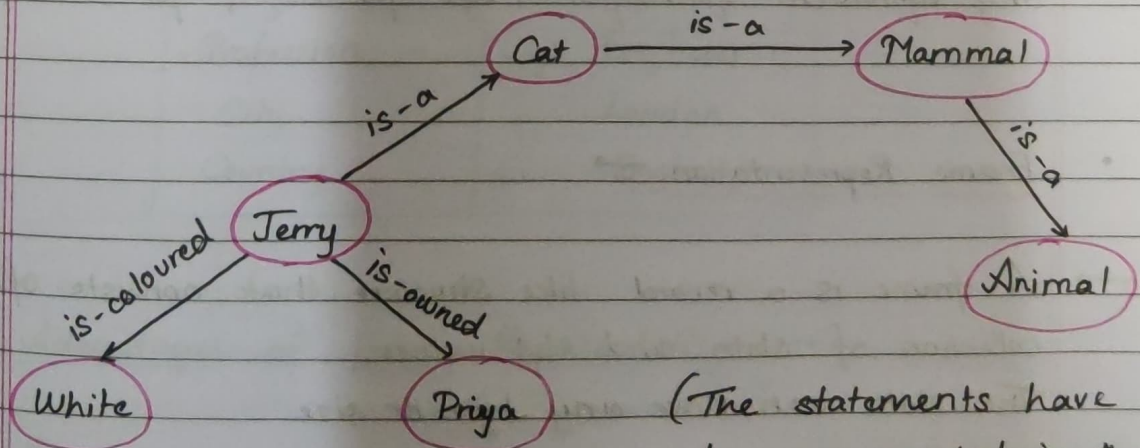 Cat is-a Mammal
is-a
is-a
Jerry
is-coloured
is-owned
Animal
White
Priya
(The statements have